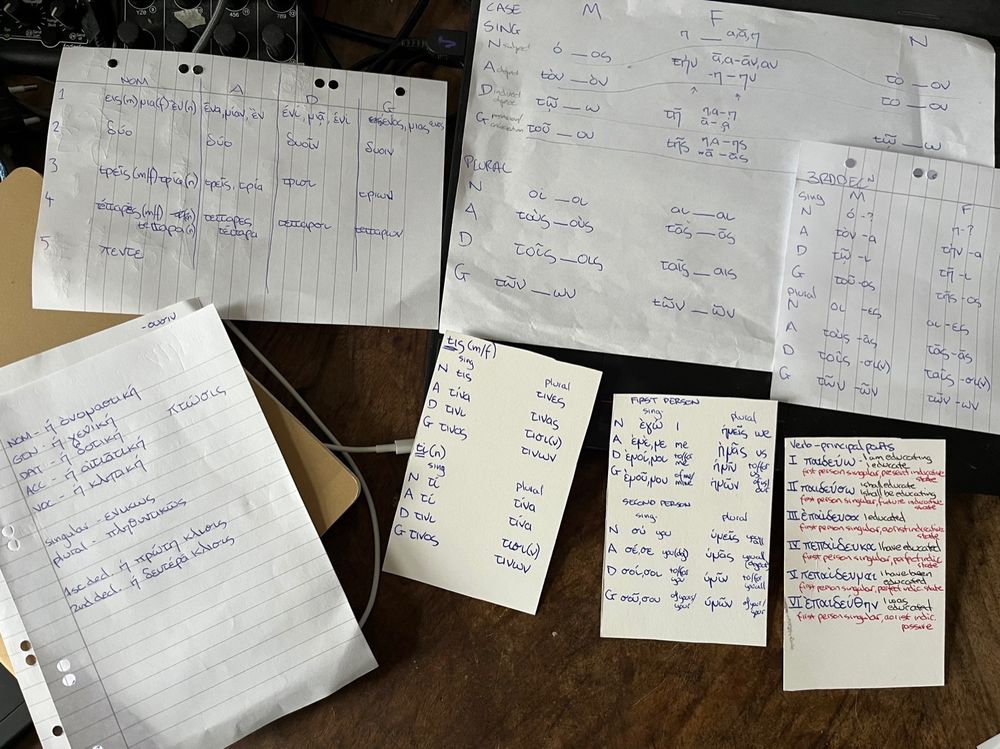 NOM A D G
1 εις(m)/μια(f)/ἑν(n) ἑνα, μίαν, ἑν ἑνί, μιᾷ, ἑνί
2 δύο δύο δυοῖν δυοιν
3 τρεῖς (m/f) τρία(n) τρεῖς, τρία τρισι τριων
4 τέτταρες(m/f) τετταρα(n) τετταρες τέτταρα τετταρσι τετταρων
5 πεντε
CASE M F N
SING
N subject ὁ __ ος η __ α,ᾱ,η τὸ __ ον
A τὸν __ ὸν τὴν ᾱ,α-ᾱν,αν -η - ην το __ ον
D τῷ __ ω τῇ ηα-η ᾱ-ᾳ τῷ __ ω
G τοῦ __ ου τῆς ηα-ης ᾱ-ᾱς
PLURAL
N οἱ __ οι αι __ αι
A τοὺς __ οὺς τᾱ̀ς __ ᾱς
D τοῖς __ οις ταῖς __ αις
G τῶν __ ων τῶν __ ῶν
3RD DECN
sing M F
N ὁ -? η -?
A τὸν -α τὴν -α
D τῷ -ι τῇ -ι
G τοῦ -ος τῆς -ος
plural
N οι -ες αι -ες
A τοὺς -ᾰς τᾱς -ᾰς
D τοῖς -σι(ν) ταῖς -σι(ν)
G τῶν -ῶν τῶν -ων
-ουσιν
NOM - ἡ ὀνομαστική πτῶσις
GEN - ἡ γενική
DAT - ἡ δοτική
ACC - ἡ αἰτιατική
VOC - ἡ κλητική
singular - ἑνικως
plural - πληθυντικῶς
1st decl. ἡ πρώτη κλισις
2nd decl. ἡ δευτέρᾱ κλισις
τις (m/f)
sing plural
N τις τινές
A τίνα τινας
D τινι τισι(ν)
G τινος τινων
τι (n)
sing plural
N τί τίνα
A τί τίνα
D τινι τισι(ν)
G τινος τινων
FIRST PERSON
sing. plural
N ἐγώ I ἡμεῖς we
A ἐμέ, με me ἡμᾶς us
D ἐμοί, μοι to/for me ἡμῖν to/for us
G ἐμοῦ, μου of me/mine ἡμῶν of us/our
SECOND PERSON
sing. plural
N σύ you ὑμεῖς you all
A σέ, σε you ὑμᾶς you all
D σοί, σοι to/for you ὑμῖν to/for you all
G σοῦ, σου of you/your ὑμῶν of you/your
Verb-principal parts
I παιδεύω I am educating I educate
first person singular, present indicative state
II παιδεύσω I shall educate I shall be educating
first person singular, future indicative state
III ἐπαίδευσα I educated
first person singular, aorist indicative state
IV πεπαίδευκα I have educated
first person singular, perfect indic state
V πεπαίδευμαι I have been educated
first person singular, perfect indic. state
VI ἐπαιδεύθην I was educated
first person singular, aorist indic. passive